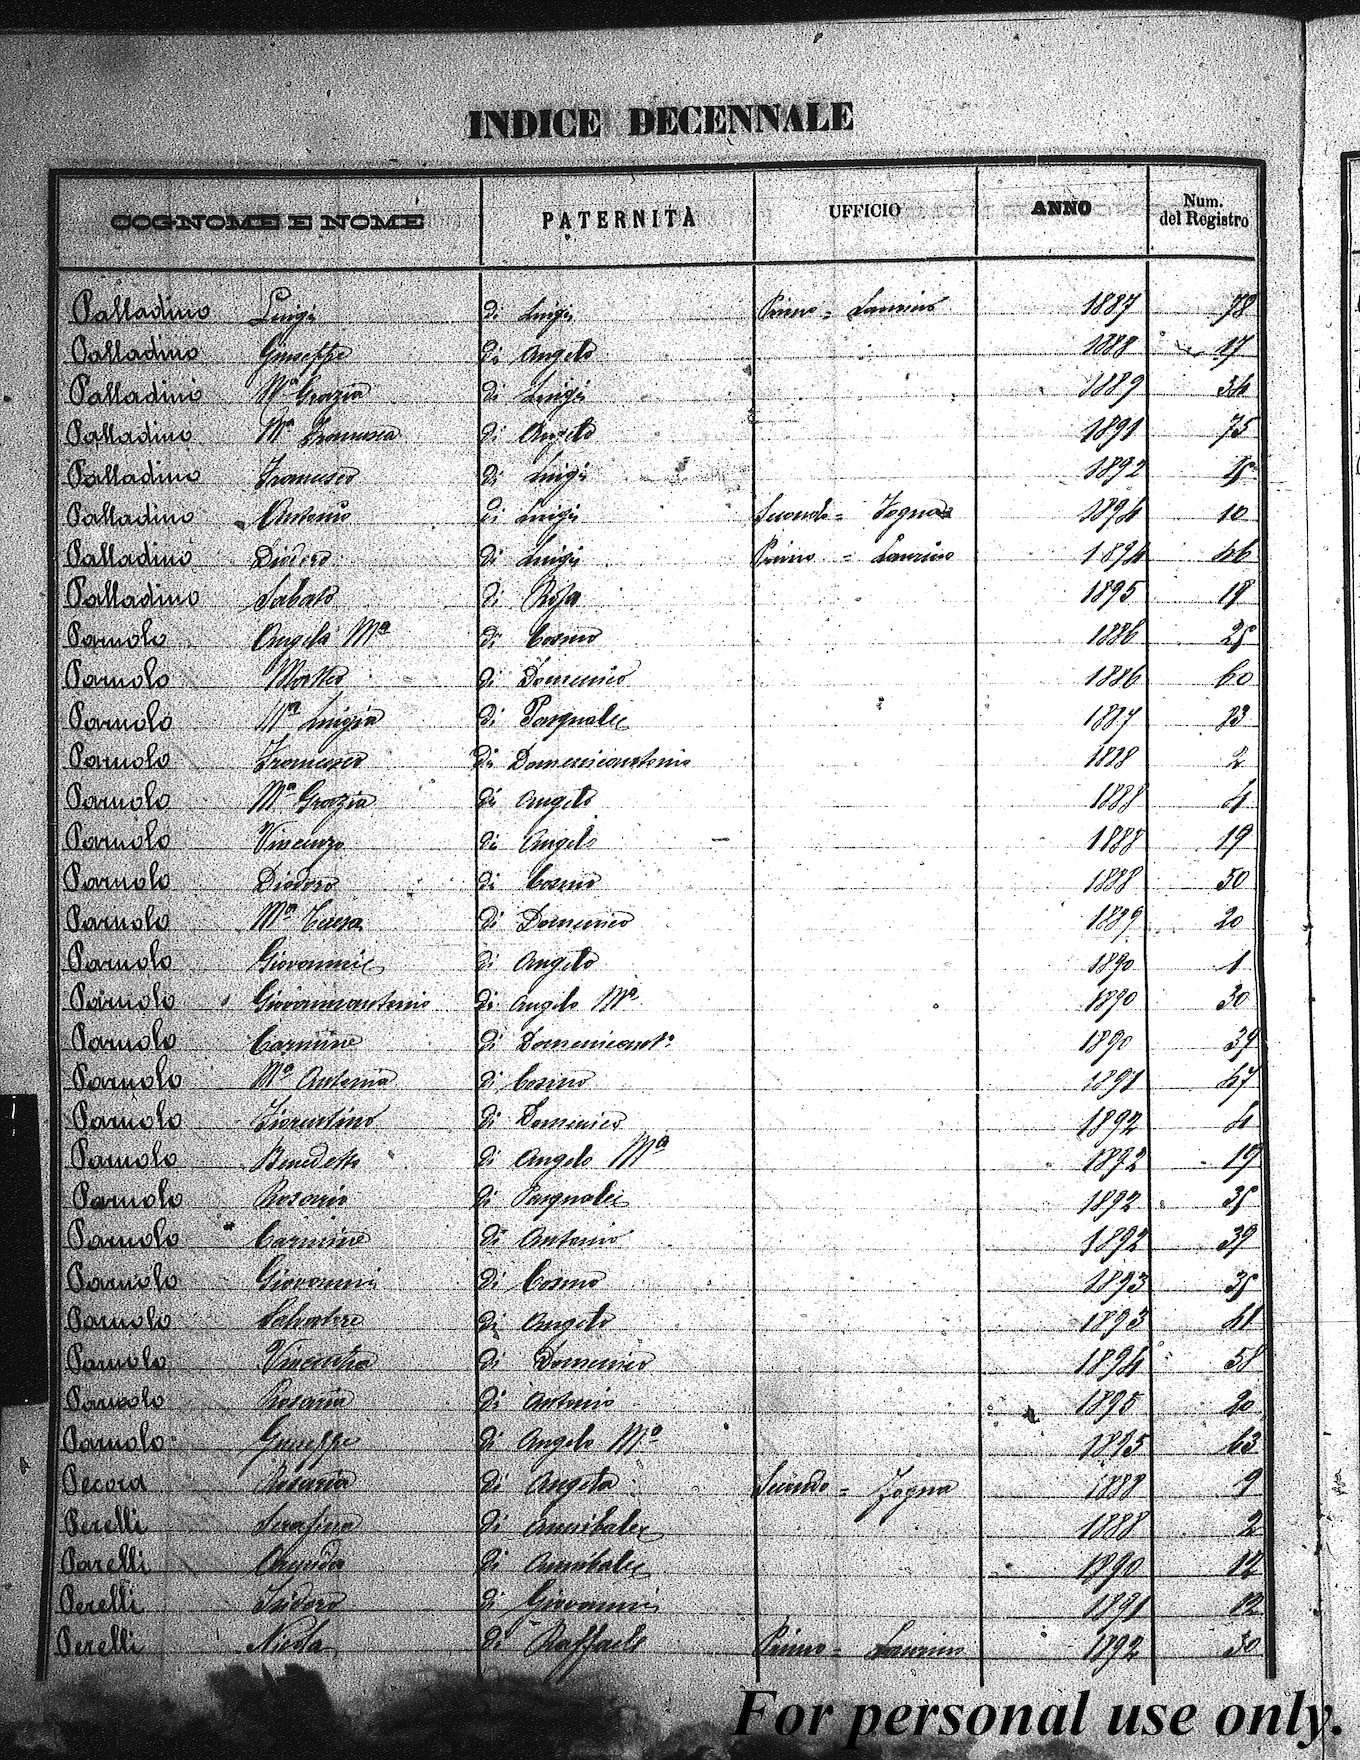 INDICE DECENNALE
COGNOME E NOME PATERNITÀ UFFICIO ANNO Num. del Registro
Palladino Luigi di Luigi Primo = Laurino 1887 78
Palladino Giuseppe di Angelo 1888 17
Palladino Mª Grazia di Luigi 1889 34
Palladino Mª Francesca di Angelo 1891 75
Palladino Francesco di Luigi 1892 15
Palladino Antonio di Luigi Secondo = Fogna 1894 10
Palladino Diodoro di Luigi Primo = Laurino 1894 46
Palladino Sabato di Rosa 1895 18
Parnolo Angela Mª di Cosmo 1886 25
Parnolo Matteo di Domenico 1886 60
Parnolo Mª Luigia di Pasquale 1887 23
Parnolo Francesco di Domenicantonio 1888 2
Parnolo Mª Grazia di Angelo 1888 4
Parnolo Vincenzo di Angelo 1888 19
Parnolo Diodoro di Cosmo 1888 50
Parnolo Mª Teresa di Domenico 1889 20
Parnolo Giovannie di Angelo 1890 1
Parnolo Giovannantonio di Angelo Mª 1890 30
Parnolo Carmine di Domenicantº 1890 39
Parnolo Mª Antonia di Cosmo 1891 47
Parnolo Fiorentino di Domenico 1892 4
Parnolo Benedetto di Angelo Mª 1892 17
Parnolo Rosario di Pasquale 1892 35
Parnolo Carmine di Antonio 1892 39
Parnolo Giovanni di Cosmo 1893 35
Parnolo Salvatore di Angelo 1893 41
Parnolo Vincenza di Domenico 1894 58
Parnolo Rosaria di Antonio 1895 20
Parnolo Giuseppe di Angelo Mª 1895 63
Pecora Rosaria di Angelo Secondo = Fogna 1888 9
Perelli Serafina di Annibale 1888 2
Parelli di Annibale 1890 12
Perelli Isidoro di Giovanni 1891 12
Perelli Nicola di Raffaele Primo = Laurino 1892 30
For personal use only.